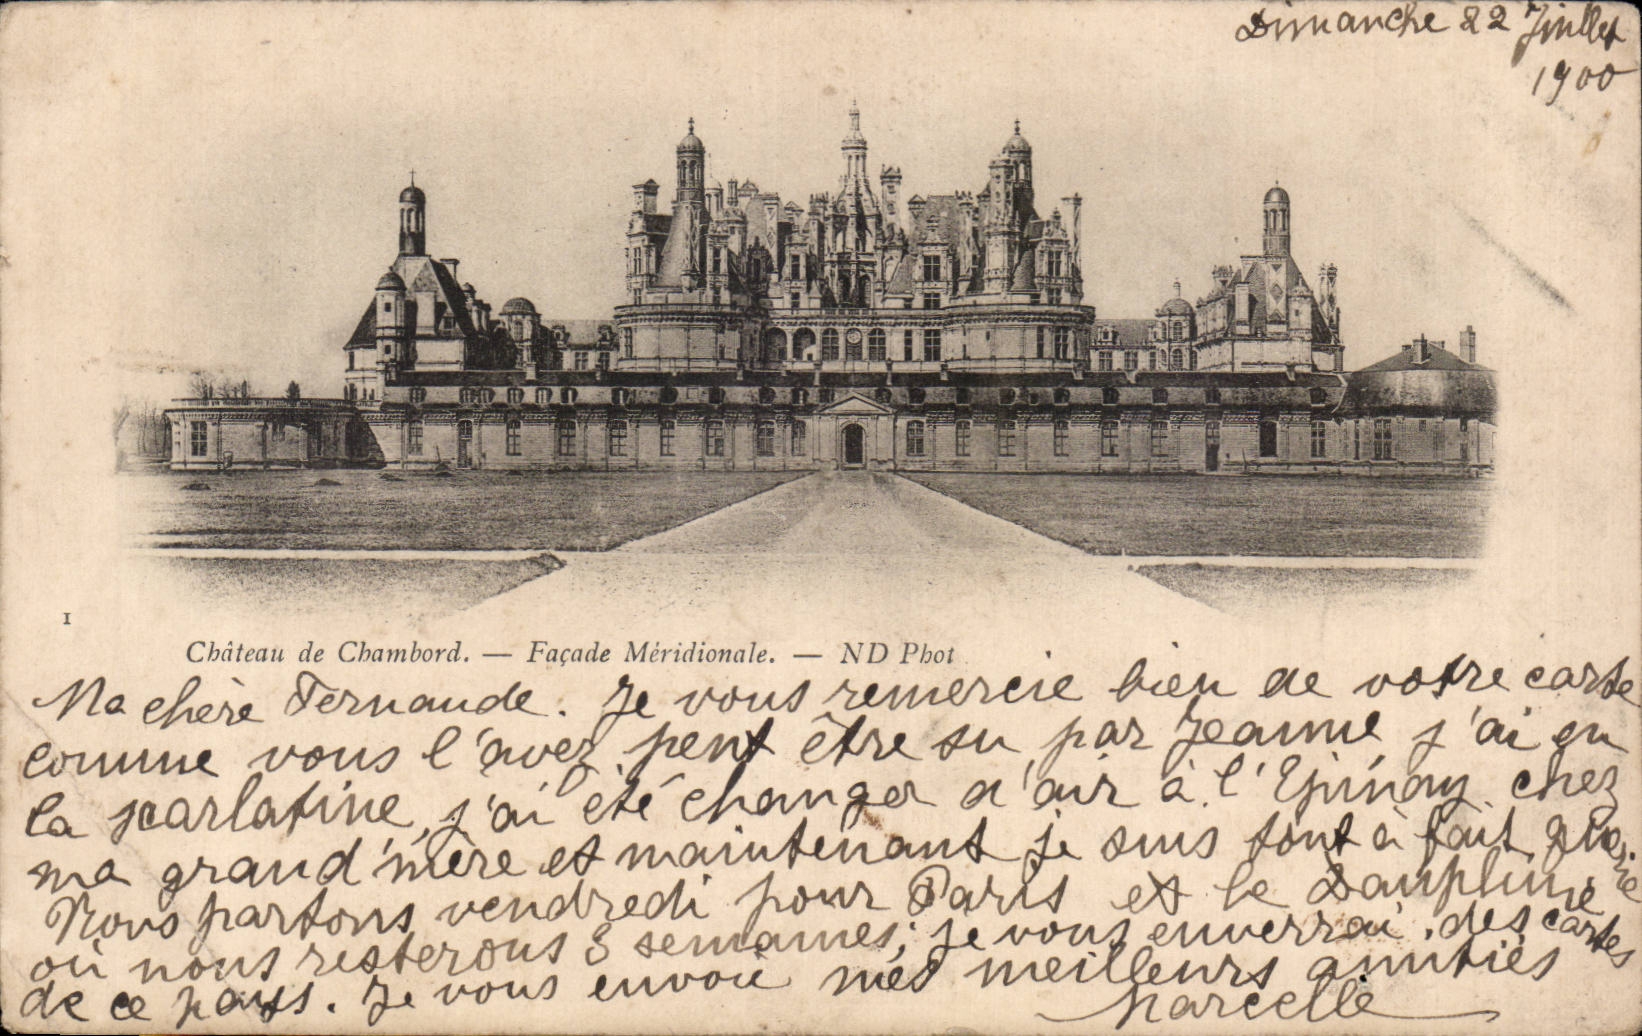 Dimanche 22 Juillet
1900
1
Château de Chambord. — Façade Méridionale. — ND Phot
Ma chère Fernande. Je vous remercie bien de votre carte
comme vous l'avez peut être su par Jeanne j'ai eu
la scarlatine, j'ai été changer d'air à l'Epinay chez
ma grand'mère et maintenant je suis tout à fait guérie
Nous partons vendredi pour Paris et le Dauphiné
où nous resterons 3 semaines; je vous enverrai des cartes
de ce pays. Je vous envoie mes meilleurs amitiés
Marcelle